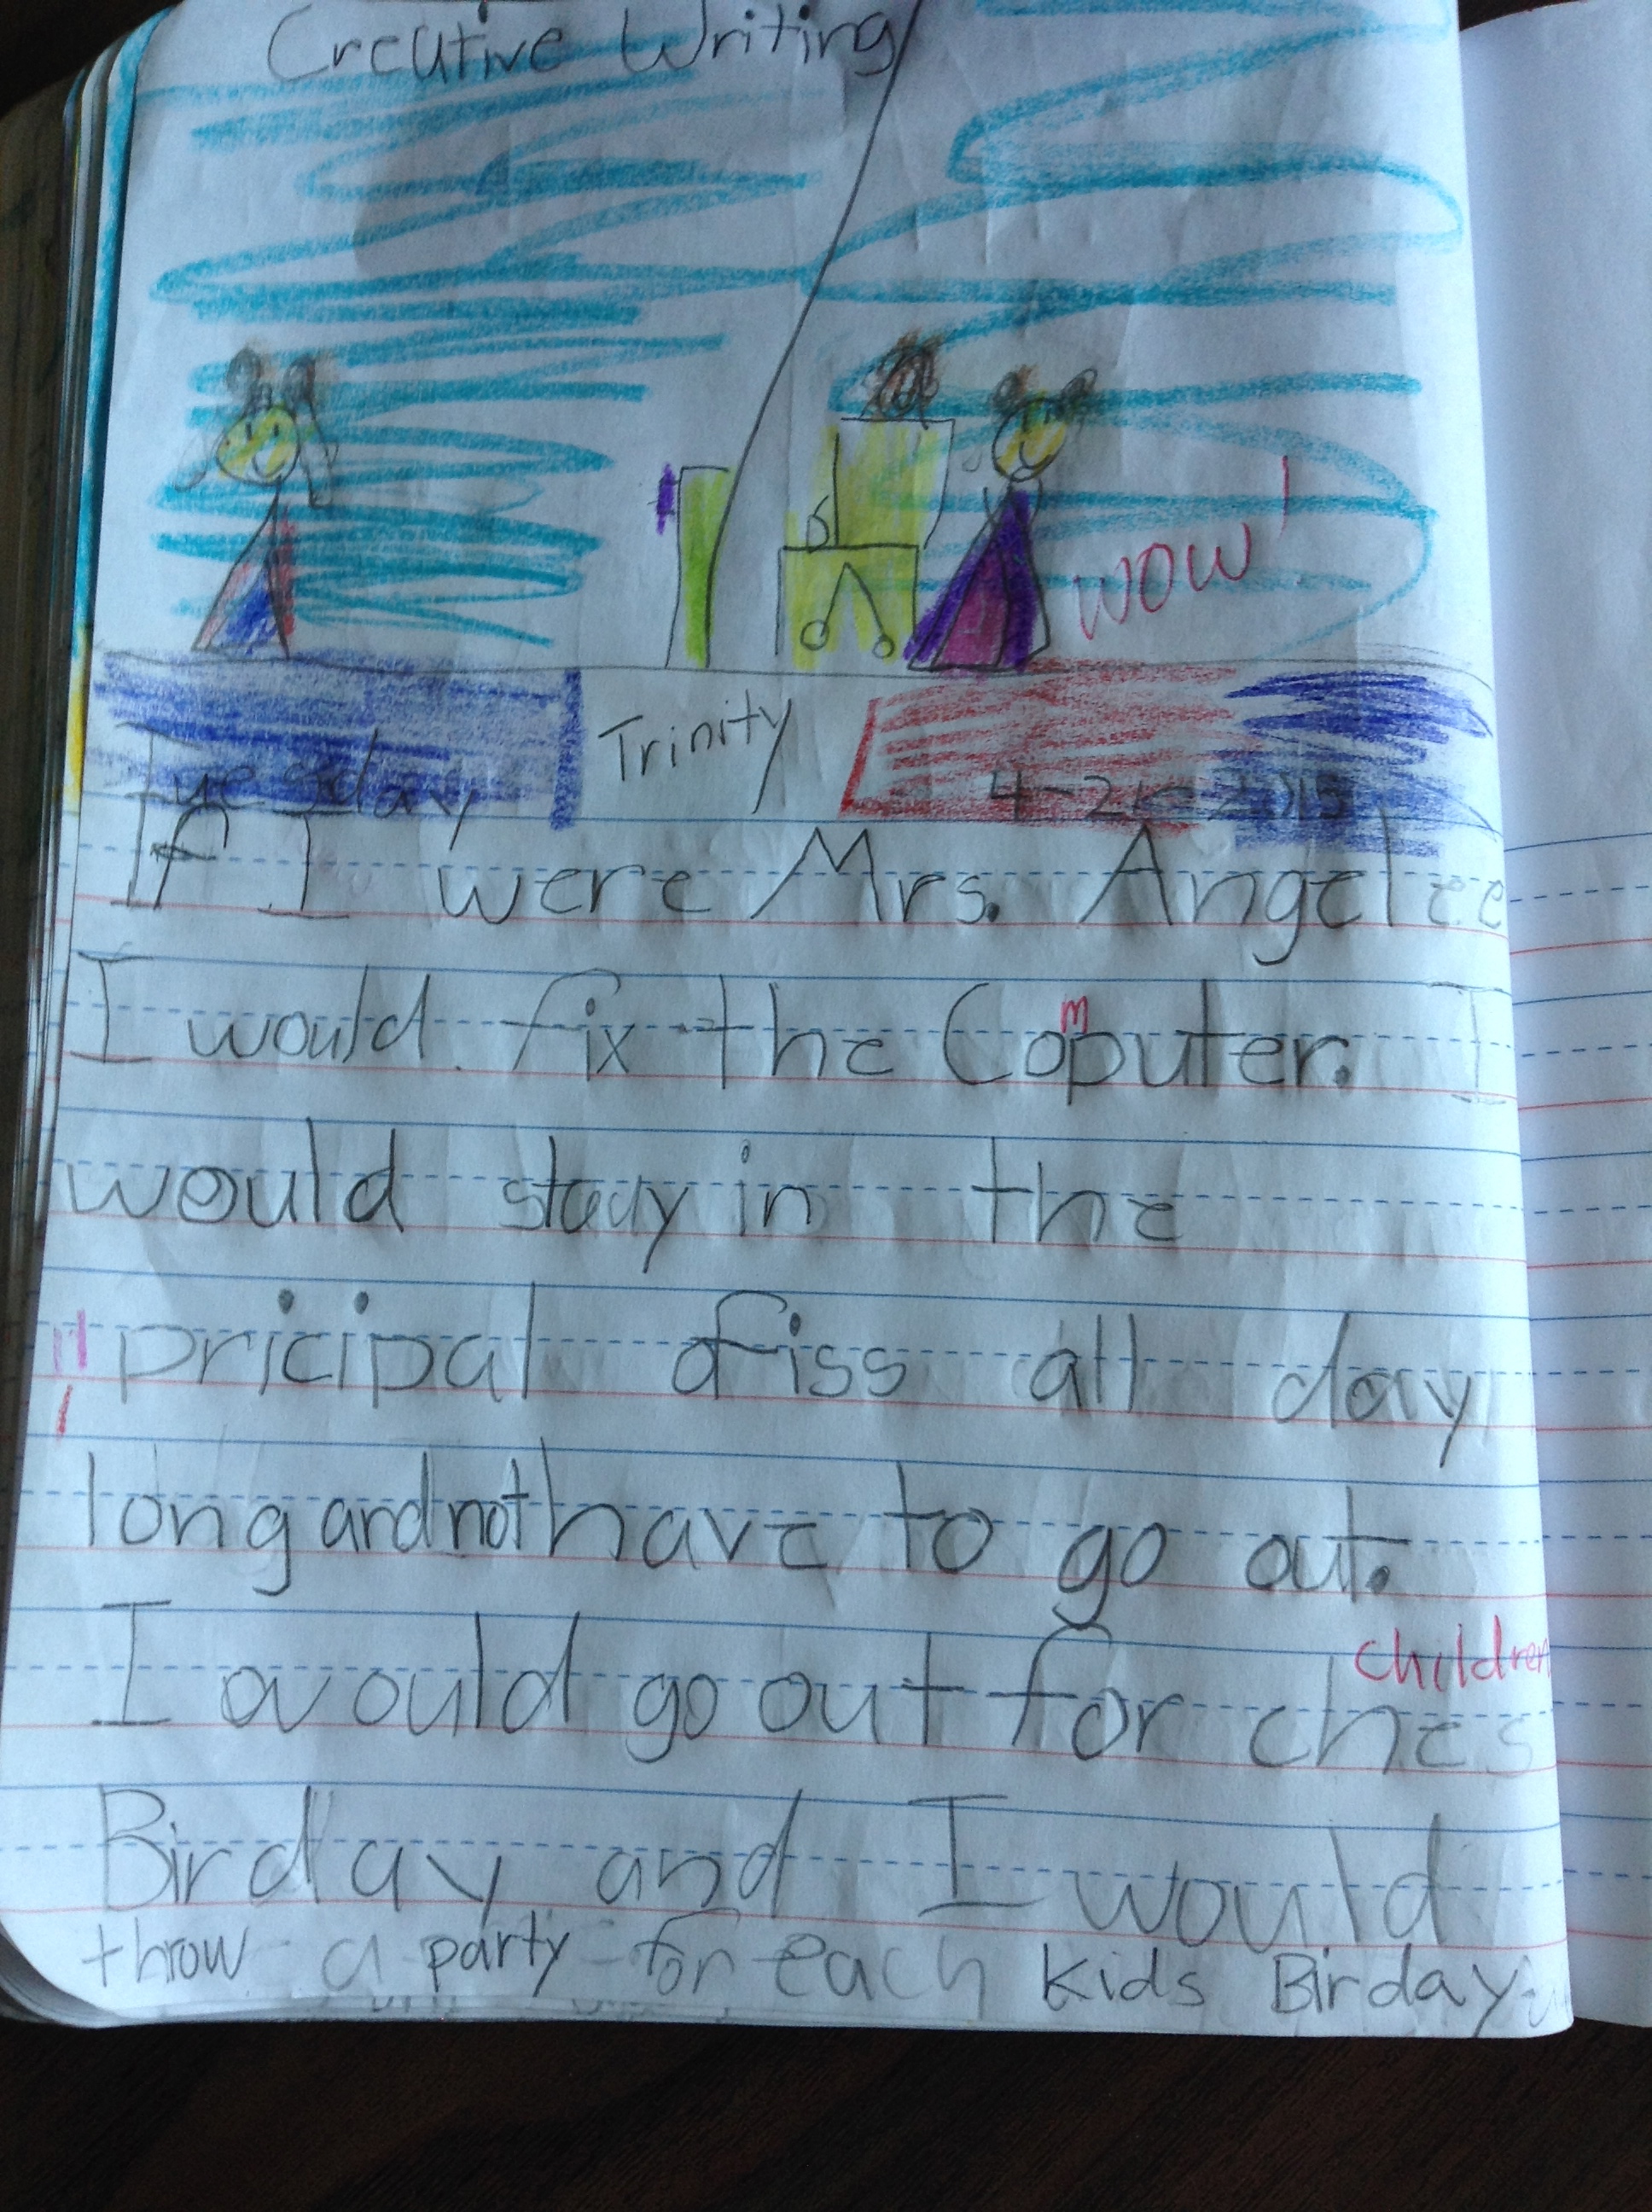 Creative Writing
wow!
Trinity
Tuesday
If I were Mrs. Angelee
m
I would fix the Coputer. I
would stay in the
pricipal ofiss all day
long and not have to go out.
children
I would go out for ches
Birday and I would
throw a party for each Kids Birday